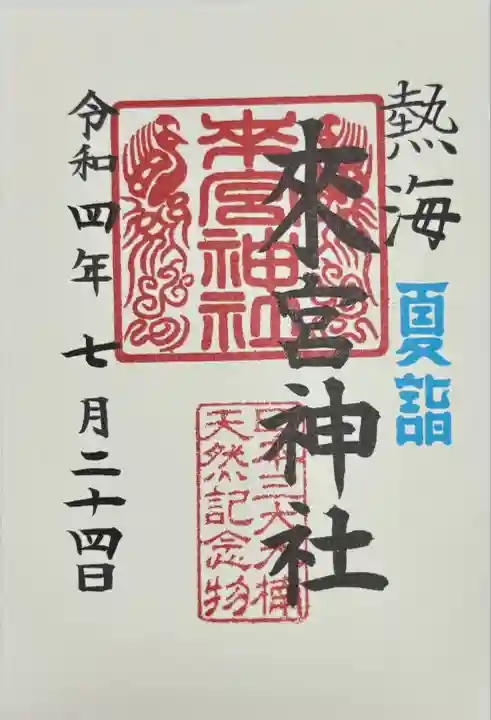 熱海
夏詣
來宮神社
來宮神社
日本三大大楠
天然記念物
令和四年七月二十四日